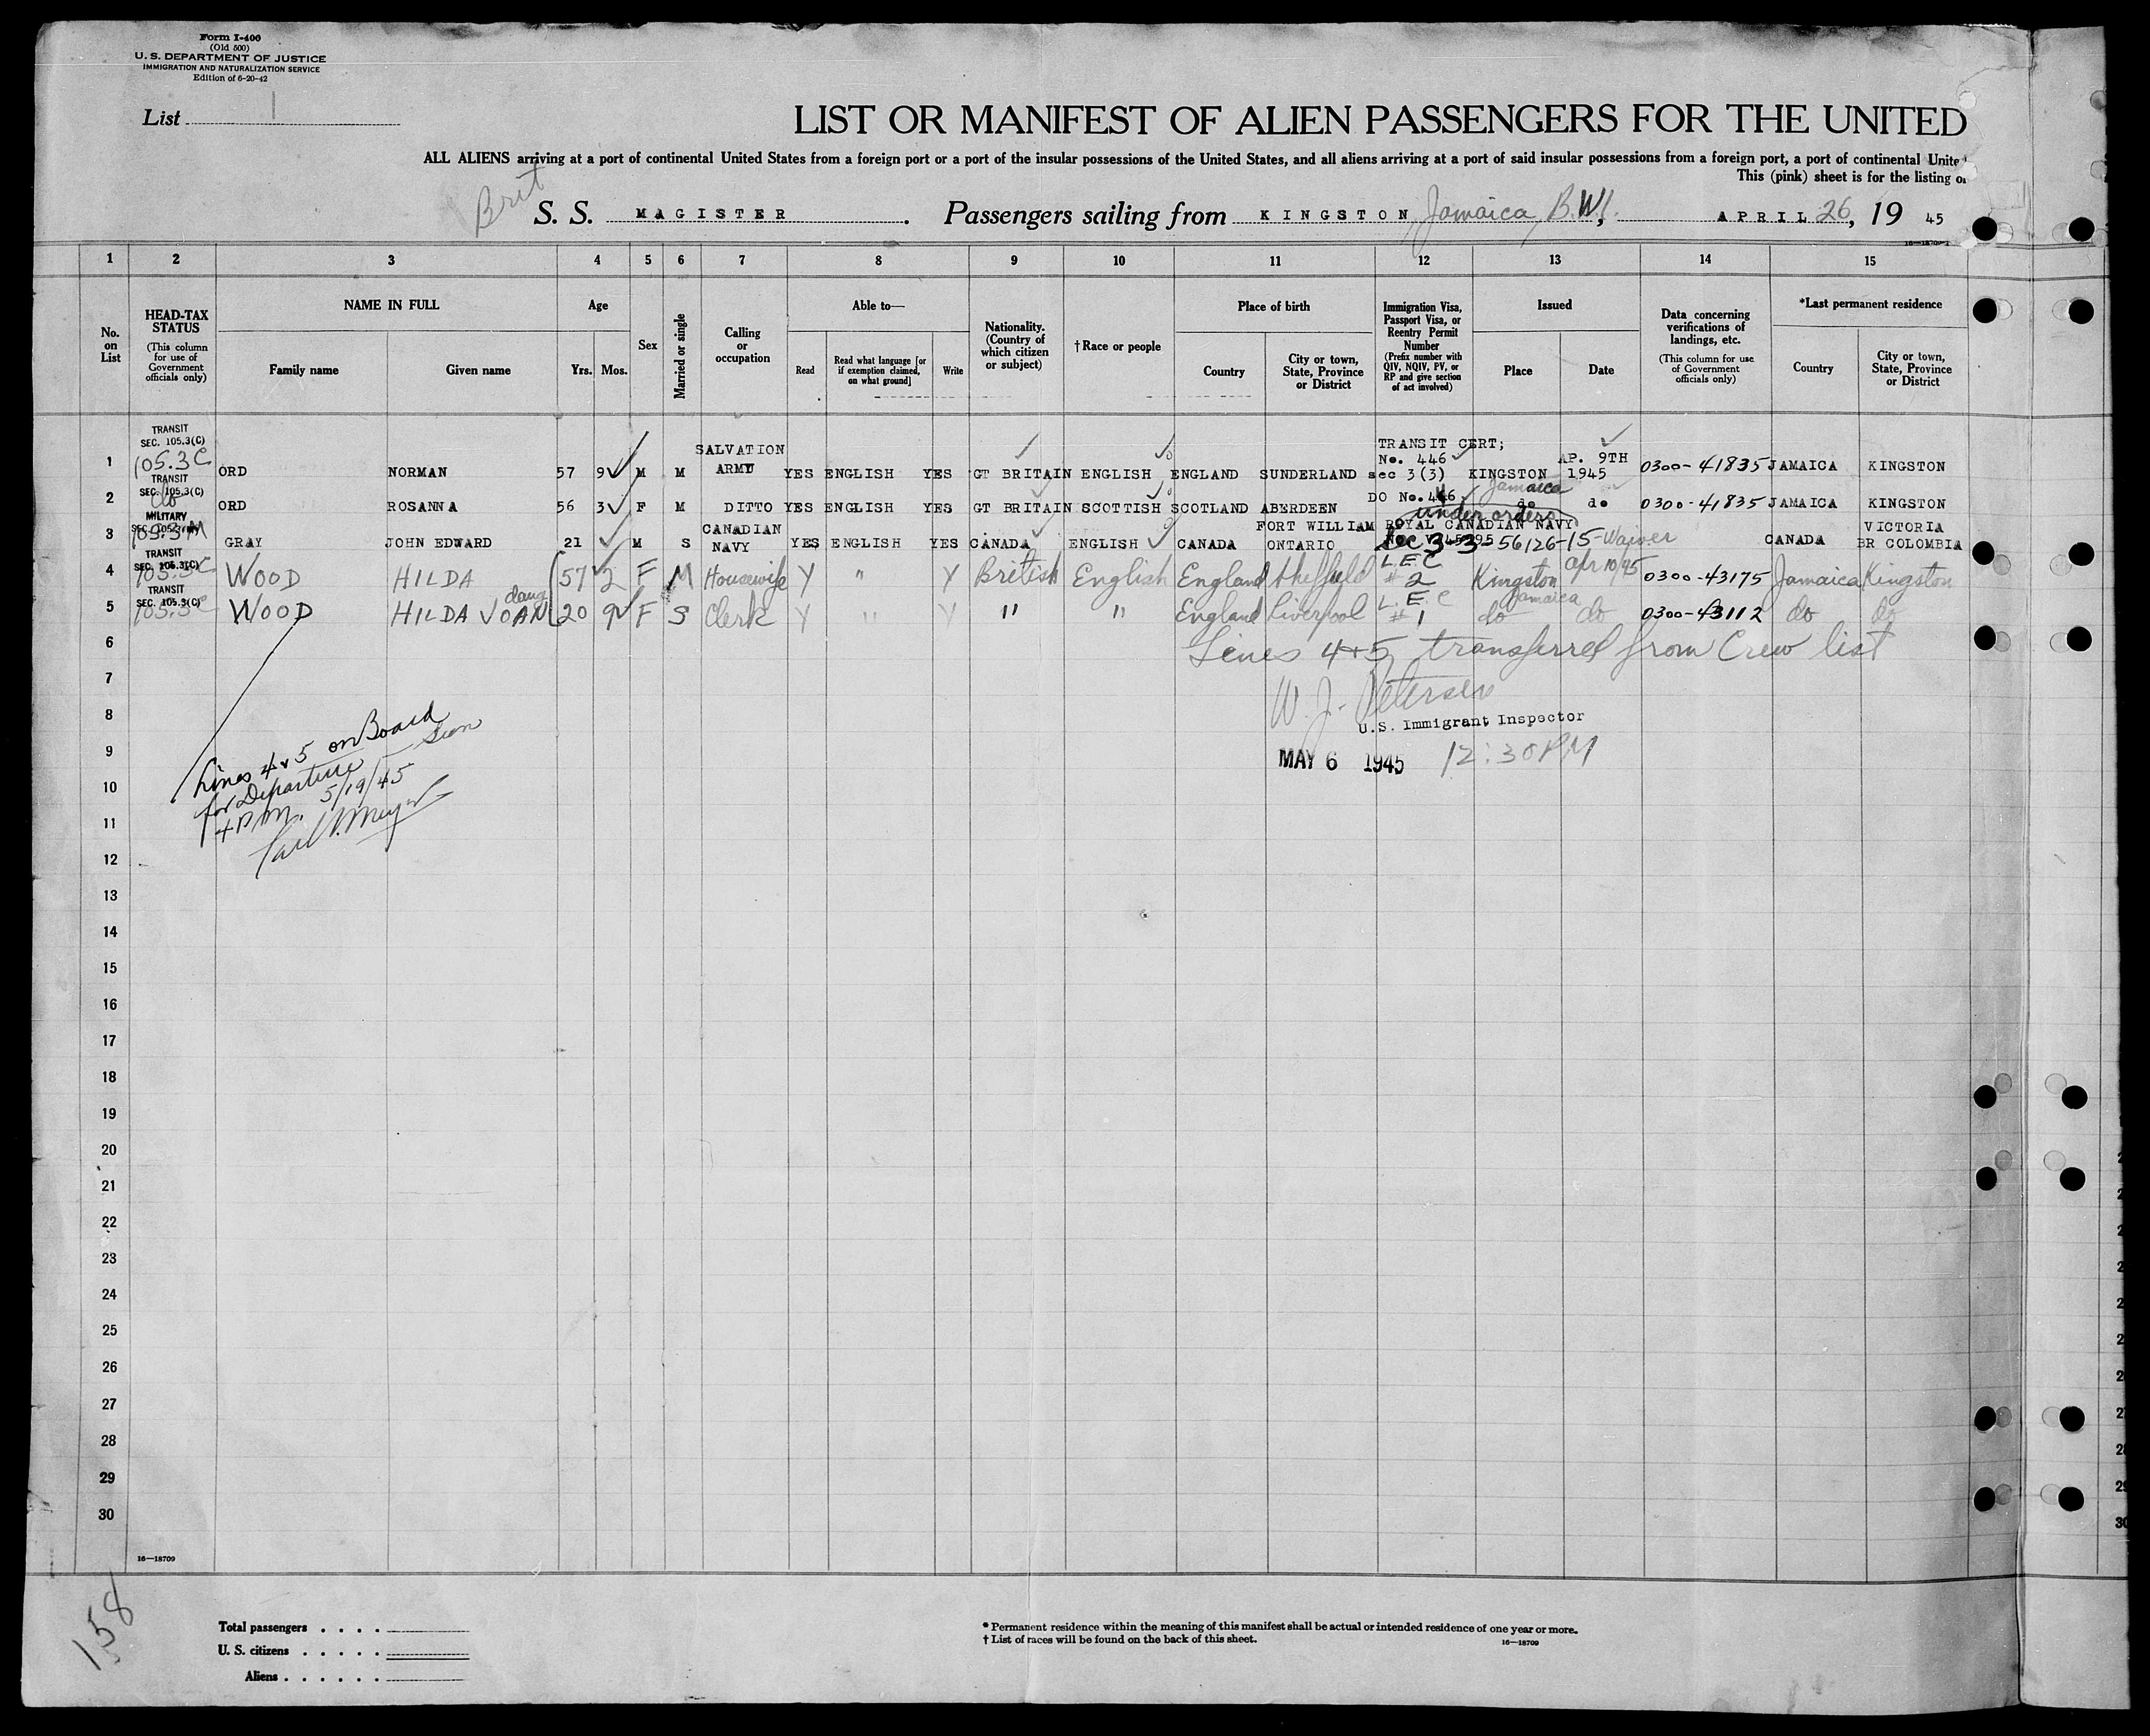 Form I-400
(Old 500)
U. S. DEPARTMENT OF JUSTICE
IMMIGRATION AND NATURALIZATION SERVICE
Edition of 6-20-42
List 1
LIST OR MANIFEST OF ALIEN PASSENGERS FOR THE UNITED
ALL ALIENS arriving at a port of continental United States from a foreign port or a port of the insular possessions of the United States, and all aliens arriving at a port of said insular possessions from a foreign port, a port of continental Unite
This (pink) sheet is for the listing o
Brit S. S. MAGISTER. Passengers sailing from KINGSTON, Jamaica, B.W.I., APRIL 26, 19 45
16—18709-1
1 2 3 4 5 6 7 8 9 10 11 12 13 14 15
No. on List
HEAD-TAX STATUS
(This column for use of Government officials only)
NAME IN FULL
Family name Given name
Age
Yrs. Mos.
Sex
Married or single
Calling or occupation
Able to—
Read
Read what language [or if exemption claimed, on what ground]
Write
Nationality. (Country of which citizen or subject)
†Race or people
Place of birth
Country
City or town, State, Province or District
Immigration Visa, Passport Visa, or Reentry Permit Number
(Prefix number with QIV, NQIV, PV, or RP and give section of act involved)
Issued
Place Date
Data concerning verifications of landings, etc.
(This column for use of Government officials only)
*Last permanent residence
Country
City or town, State, Province or District
TRANSIT
SEC. 105.3(C)
SALVATION TRANSIT CERT;
105.3C ARMY No. 446 AP. 9TH
1 ORD NORMAN 57 9 M M YES ENGLISH YES GT BRITAIN ENGLISH ENGLAND SUNDERLAND sec 3(3) KINGSTON 1945 0300-41835 JAMAICA KINGSTON
TRANSIT
SEC. 105.3(C)
Jamaica
do DO No. 446
2 ORD ROSANNA 56 3 F M DITTO YES ENGLISH YES GT BRITAIN SCOTTISH SCOTLAND ABERDEEN do do 0300-41835 JAMAICA KINGSTON
MILITARY under orders
105.3M CANADIAN FORT WILLIAM ROYAL CANADIAN NAVY VICTORIA
3 GRAY JOHN EDWARD 21 M S NAVY YES ENGLISH YES CANADA ENGLISH CANADA ONTARIO Sec 3-3- 56126-15-Waiver CANADA BR COLOMBIA
TRANSIT
SEC. 105.3(C)
105.3C L.E.C
4 WOOD HILDA 57 2 F M Housewife Y " Y British English England Sheffield #2 Kingston Apr 10/45 0300-43175 Jamaica Kingston
TRANSIT daug Jamaica
SEC. 105.3(C)
105.3C L.E.C
5 WOOD HILDA JOAN 20 9 F S Clerk Y " Y " " England Liverpool #1 do do 0300-43112 do do
6 Lines 4+5 transferred from Crew list
7 W. J. Petersen
8 U.S. Immigrant Inspector
9 MAY 6 1945 12:30PM
Lines 4 & 5 on Board
for Departure
5/19/45
10
11
12
13
14
15
16
17
18
19
20
21
22
23
24
25
26
27
28
29
30
16—18709
158
Total passengers
U. S. citizens
Aliens
* Permanent residence within the meaning of this manifest shall be actual or intended residence of one year or more.
† List of races will be found on the back of this sheet. 16—18709